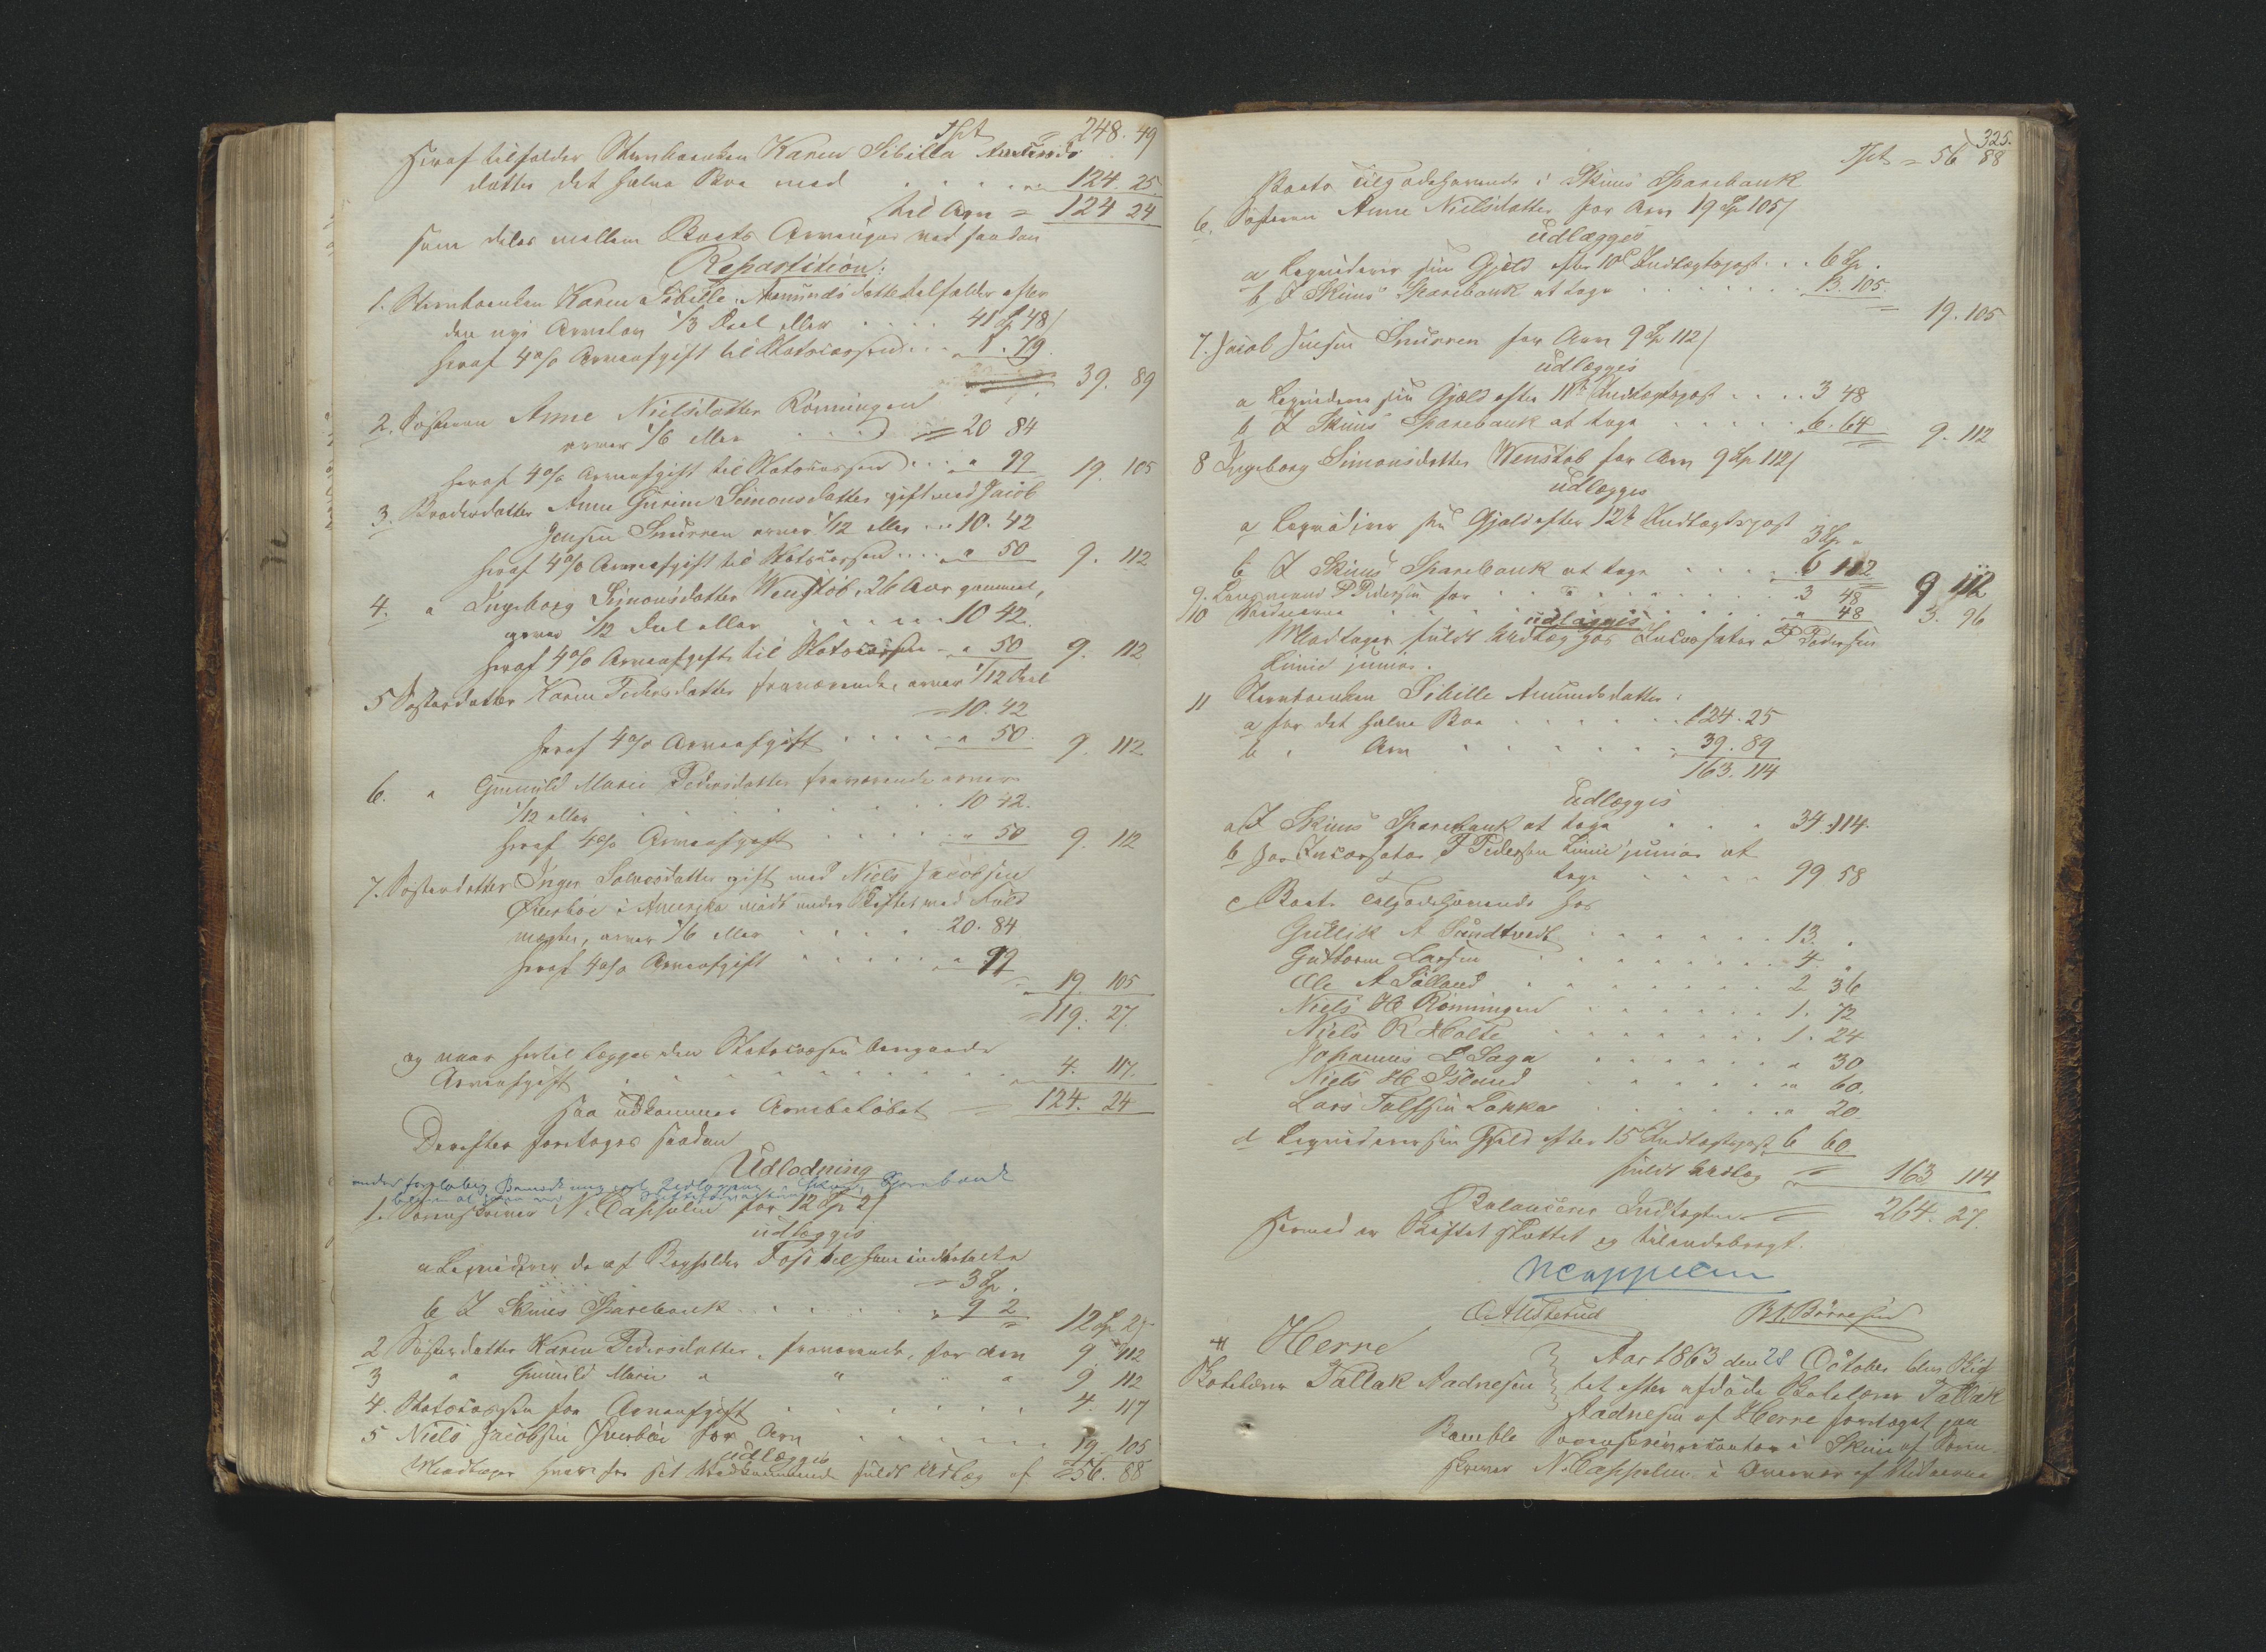 Tpt = 248. 49
Heraf tilfalder Stervboenken Karen Sibilla Amunds
datter det halve Boe med . . . . . 124. 25
til Arv = 124 24
som deles mellem Boets Arvinger ved saadan
Repartition:
1. Stervboenken Karen Sibille Amundsdatter tilfalder efter
den nye Arvelov 1/3 Deel eller . . . . 41 Sp 48 /
heraf 4 % Arveafgift til Statscassen . . . 1. 79.
39. 89
2. Søsteren Anne Nielsdatter Rønningen
arver 1/6 eller . . . = 20 84
heraf 4 % Arveafgift til Statscassen . . . " 99 19. 105
3. Broderdatter Anne Gurine Simonsdatter gift med Jacob
Jensen Snurren arver 1/12 eller . . . 10. 42
heraf 4 % Arveafgift til Statscassen . . . . " 50 9. 112
4. " Ingeborg Simonsdatter Wenstøb, 26 Aar gammel,
arver 1/12 Deel eller . . . . . 10 42.
heraf 4 % Arveafgift til Statscassen - " 50 9. 112
5 Søsterdatter Karen Pedersdatter fraværende, arver 1/12 Deel
= 10. 42
heraf 4 % Arveafgift . . . . . " 50. 9. 112
6. " Gunnild Marie Pedersdatter fraværende arver
1/12 eller . . . . . . . . 10 42.
heraf 4 % Arveafgift . . . . . " 50 9. 112
7. Søsterdatter Inger Solveosdatter gift med Niels Jacobsen
Øverbøe i Amerika mødt under Skiftet ved Fuld
mægtig, arver 1/6 eller . . . . 20. 84
heraf 4 % Arveafgift . . . . . " 99
19. 105
= 119. 27.
og naar hertil lægges den Statscassen tilgaaende
Arveafgift . . . . . . . . . 4. 117.
saa udkommer Arvebeløbet = 124. 24
Derefter foretages saadan
Udlodning
under foreløbig
1. Sorenskriver N. Cappelen for 12 Sp 2 /
udlægges
a Liqviderer de af Fogt til ham indbetalte
= 3 Sp.
b I Skiens Sparebank . . . . . " 9 2 12 Sp 2 /
2 Søsterdatter Karen Pedersdatter, fraværende, for Arv 9 112
3 " Gunnild Marie " " " " 9 112
4. Statscassen for Arveafgift . . . . . . . 4. 117
5 Niels Jacobsen Øverbøe for Arv . . . . . 19. 105
udlægges
Modtager hver for sit Vedkommende fuldt Udlæg af = 56. 88
325.
Tpt = 56 88
Boets Tilgodehavende i Skiens Sparebank
6. Søsteren Anne Nielsdatter for Arv 19 Sp 105 /
udlægges
a Liqviderer sin Gjeld efter 10de Indtægtspost . . . 6 Sp.
b I Skiens Sparebank at tage . . . . . . . 13. 105.
= 19. 105
7. Jacob Jensen Snurren for Arv 9 Sp 112 /
udlægges
a Liqviderer sin Gjeld efter 11te Indtægtspost . . . . 3 48
b I Skiens Sparebank at tage . . . . . 6. 64 9. 112
8 Ingeborg Simonsdatter Wenstøb for Arv 9 Sp 112 /
udlægges
a Liqviderer sin Gjeld efter 12te Indtægtspost
3 Sp "
b I Skiens Sparebank at tage . . . . . 6 112 9 112
9. Lensmand P. Pedersen for . . . . . . . . . 3 48
10 Vidnerne . . . . . . . . . " 48 3. 96
udlægges
Modtager fuldt Udlæg hos Incassator P Pedersen
Limie junior.
11 Stervboenken Sibille Amundsdatter:
a for det halve Boe . . . . . . . 124. 25
b " Arv . . . . . . . 39. 89
163. 114
udlægges
a I Skiens Sparebank at tage . . . 34. 114.
b Hos Incassator P Pedersen Limie junior at
tage . . . . 99 58
c Boets Tilgodehavende hos
Gullik A Sundtvedt . . . . . . . 13. "
Guttorm Larsen . . . . . . . . . 4. "
Ole A Tolland . . . . . . . . 2 36
Niels H Rønningen . . . . . . . 1. 72
Niels R Holte . . . . . . . . 1. 24
Johannes L Saga . . . . . . . " 30
Niels H Island . . . . . . . " 60.
Lars Tolfsen Lakka . . . . . . . " 20
d Liqviderer sin Gjeld efter 15de Indtægtspost 6 60
fuldt Udlæg = 163 114
Balancerer Indtægten = 264. 27.
Hermed er Skiftet sluttet og tilendebragt.
NCappelen
B. Børresen
Herre
Aar 1863 den 28 October blev Skif
Tallak Aadnesen
tet efter afdøde Tallak
Aadnesen af Herre foretaget paa
Bamble Sorenskrivercontor i Skien af Soren-
skriver N. Cappelen i Overvær af Vidnerne